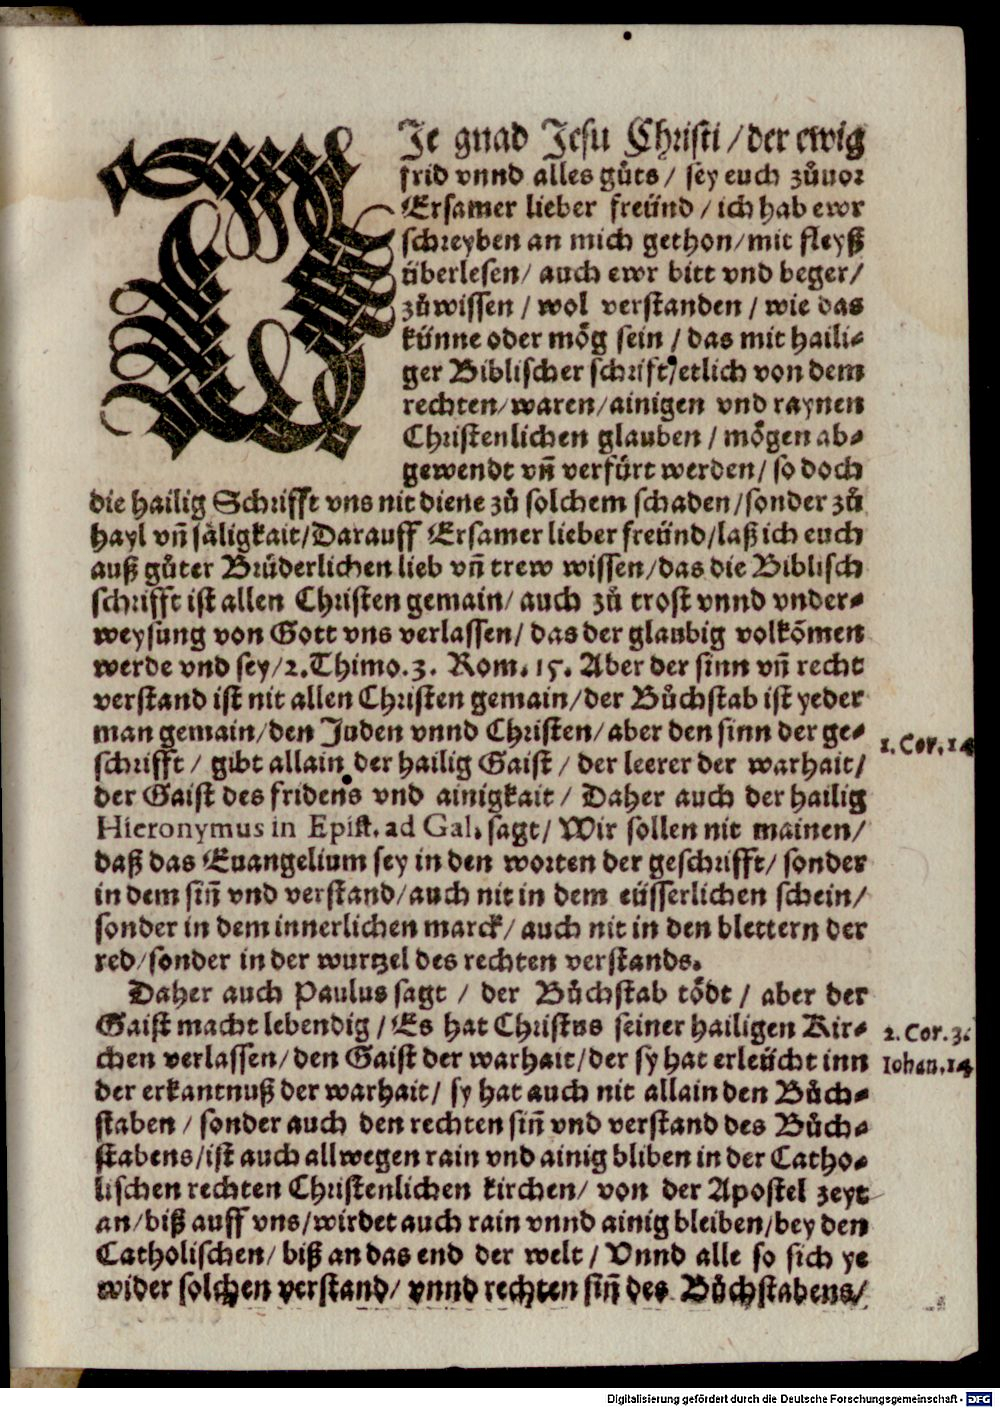 DJe gnad Jesu Christi / der ewig
frid vnnd alles gůts / sey euch zůuor
Ersamer lieber freünd / ich hab ewr
schreyben an mich gethon / mit fleyß
überlesen / auch ewr bitt vnd beger /
zůwissen / wol verstanden / wie das
künne oder mög sein / das mit haili⸗
ger Biblischer schrift / etlich von dem
rechten / waren / ainigen vnd raynen
Christenlichen glauben / mögen ab⸗
gewendt vñ verfürt werden / so doch
die hailig Schrifft vns nit diene zů solchem schaden / sonder zů
hayl vñ säligkait / Darauff Ersamer lieber freünd / laß ich euch
auß gůter Brüderlichen lieb vñ trew wissen / das die Biblisch
schrifft ist allen Christen gemain / auch zů trost vnnd vnder⸗
weysung von Gott vns verlassen / das der glaubig volkõmen
werde vnd sey / 2. Thimo. 3. Rom. 15. Aber der sinn vñ recht
verstand ist nit allen Christen gemain / der Bůchstab ist yeder
man gemain / den Juden vnnd Christen / aber den sinn der ge⸗
schrifft / gibt allain der hailig Gaist / der leerer der warhait /
1. Cor. 14
der Gaist des fridens vnd ainigkait / Daher auch der hailig
Hieronymus in Epist. ad Gal. sagt / Wir sollen nit mainen /
daß das Euangelium sey in den worten der geschrifft / sonder
in dem siñ vnd verstand / auch nit in dem eüsserlichen schein /
sonder in dem innerlichen marck / auch nit in den blettern der
red / sonder in der wurtzel des rechten verstands.
Daher auch Paulus sagt / der Bůchstab tödt / aber der
Gaist macht lebendig / Es hat Christus seiner hailigen Kir⸗
2. Cor. 3.
chen verlassen / den Gaist der warhait / der sy hat erleücht inn
Iohan. 14
der erkantnuß der warhait / sy hat auch nit allain den Bůch⸗
staben / sonder auch den rechten siñ vnd verstand des Bůch⸗
stabens / ist auch allwegen rain vnd ainig bliben in der Catho⸗
lischen rechten Christenlichen kirchen / von der Apostel zeyt
an / biß auff vns / wirdet auch rain vnnd ainig bleiben / bey den
Catholischen / biß an das end der welt / Vnnd alle so sich ye
wider solchen verstand / vnnd rechten siñ des Bůchstabens /
Digitalisierung gefördert durch die Deutsche Forschungsgemeinschaft - DFG